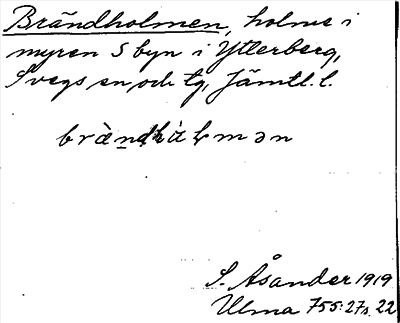 Brändholmen, holme i
myren S byn i Ytterberg,
Svegs sn och tg, Jämtl. l.
S. Åsander 1919
Ulma 755:27 s. 22